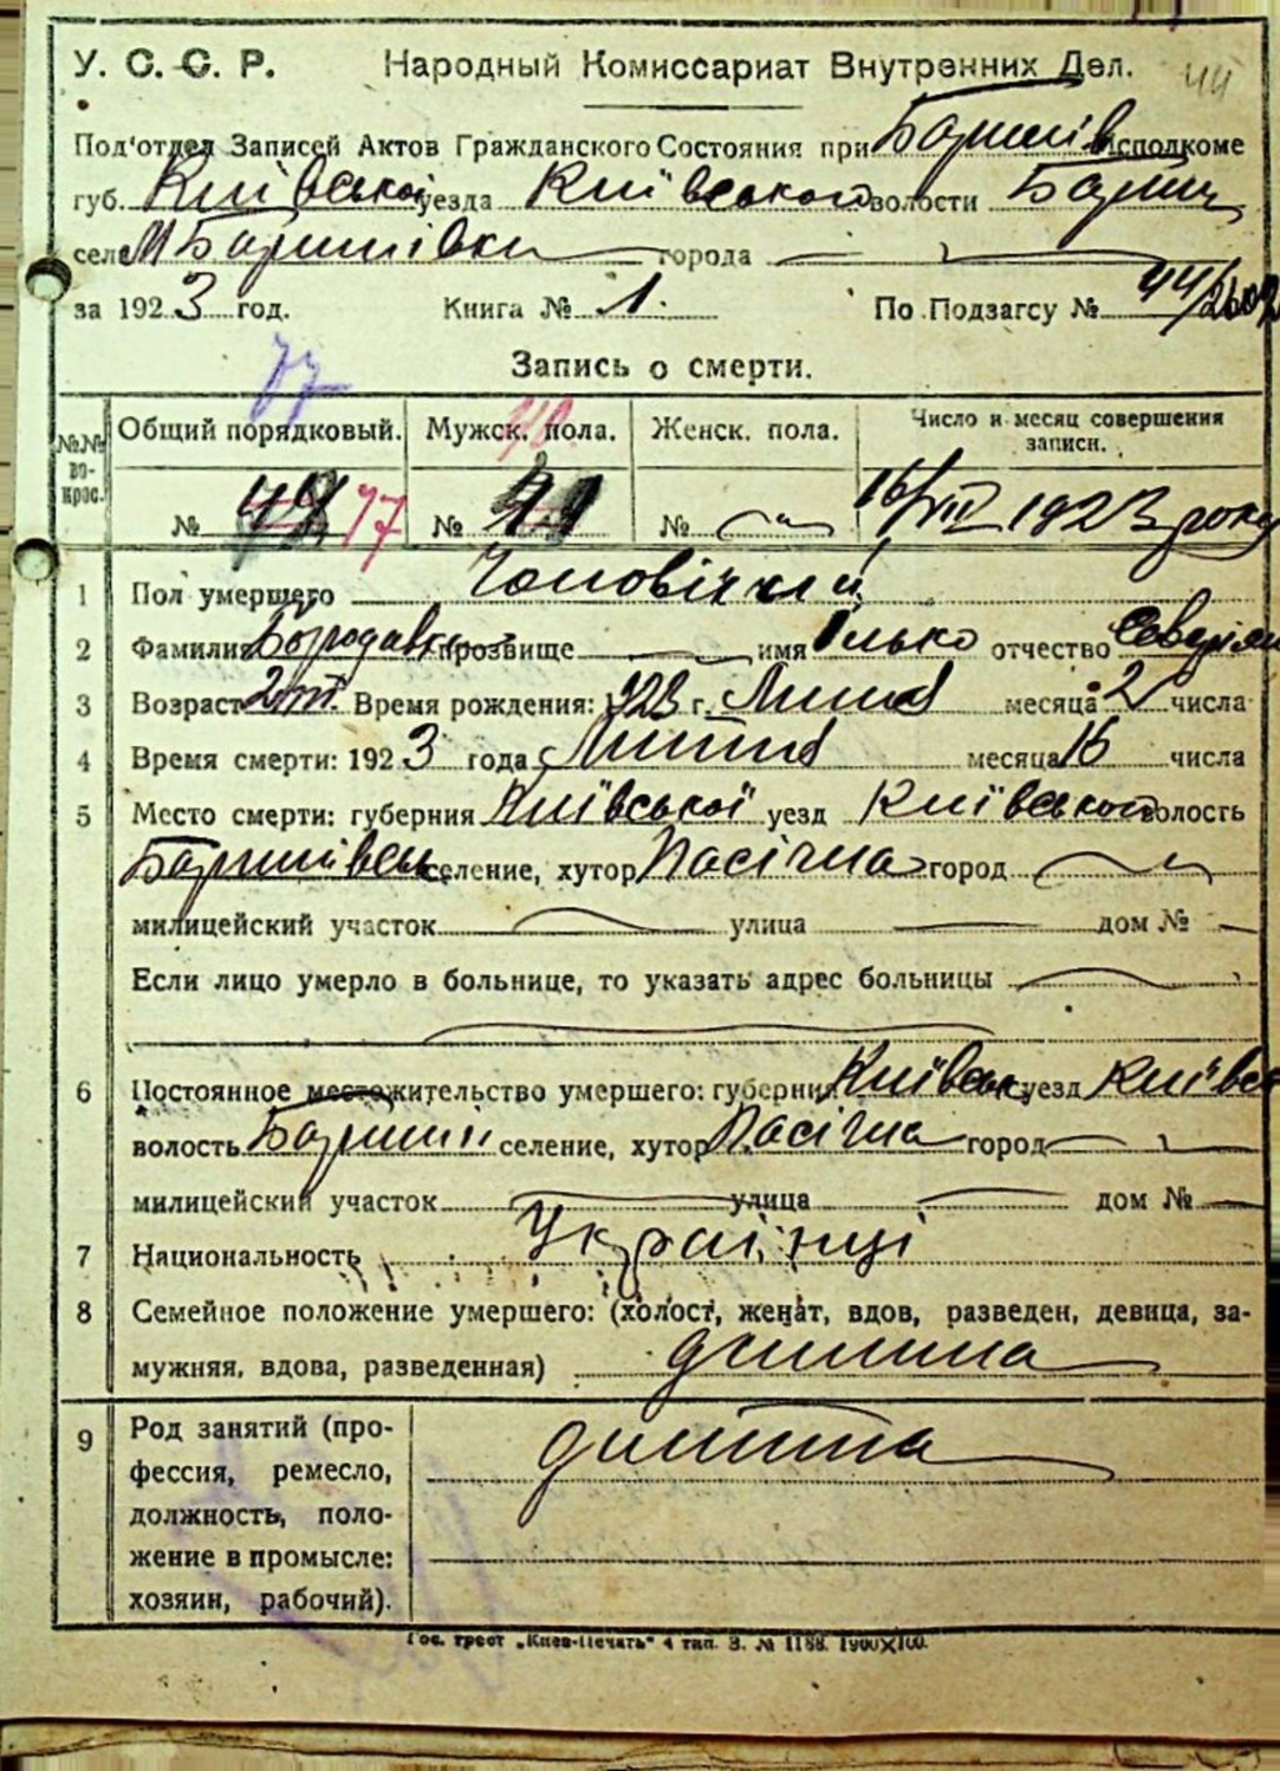 У. С. С. Р. Народный Комиссариат Внутренних Дел. 44
Под'отдел Записей Актов Гражданского Состояния при Баришів Исполкоме
губ. Київської уезда Київського волости Бариш
село М Баришівки города
за 1923 год. Книга № 1. По Подзагсу № 44/2602
77
Запись о смерти.
№№ вопрос. Общий порядковый. Мужск. пола. Женск. пола. Число и месяц совершения записи.
№ 77 № № 16/VII 1923 року
1 Пол умершего Чоловічий
2 Фамилия Бородавко прозвище имя Ілько отчество Северіян
3 Возраст 2 т. Время рождения: 1923 г. Липня месяца 2 числа
4 Время смерти: 1923 года Липня месяца 16 числа
5 Место смерти: губерния Київської уезд Київського волость
Баришівськ селение, хутор Пасічна город
милицейский участок улица дом №
Если лицо умерло в больнице, то указать адрес больницы
6 Постоянное местожительство умершего: губерния Київськ уезд Київсь
волость Баришів селение, хутор Пасічна город
милицейский участок улица дом №
7 Национальность Українці
8 Семейное положение умершего: (холост, женат, вдов, разведен, девица, за-
мужняя, вдова, разведенная) дитина
9 Род занятий (про- дитина
фессия, ремесло,
должность, поло-
жение в промысле:
хозяин, рабочий).
Гос. трест „Киев-Печать" 4 тип. З. № 1188. 1900X100.